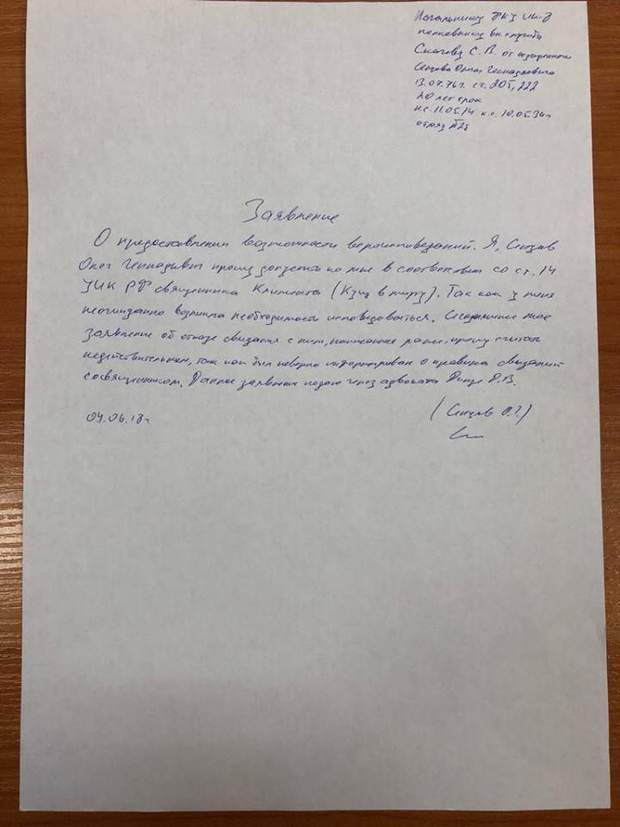 Начальнику ФКУ ИК-8
полковнику вн. службы
С. В. от осужденного
Сенцова Олега Геннадьевича
13.07.76г. ст. 205, 222
20 лет срок
н.с. 11.05.14. к.с. 10.05.34г.
отряд
Заявление
О предоставлении возможности вероисповеданий. Я, Сенцов
Олег Геннадьевич прошу допустить ко мне в соответствии со ст. 14
УИК РФ священника Климента (Кущ в миру). Так как у меня
неожиданно возникла необходимость исповедоваться. мое
заявление об отказе свидания с ним, написанное ранее, прошу считать
недействительным, так как был неверно информирован о правилах свиданий
со священником. Данное заявление подаю через адвоката Динзе Д.В.
04.06.18г. (Сенцов О.Г.)